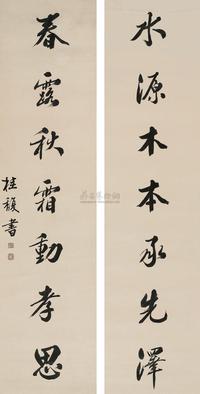 水源木本承先澤
春露秋霜動孝思
桂馥書